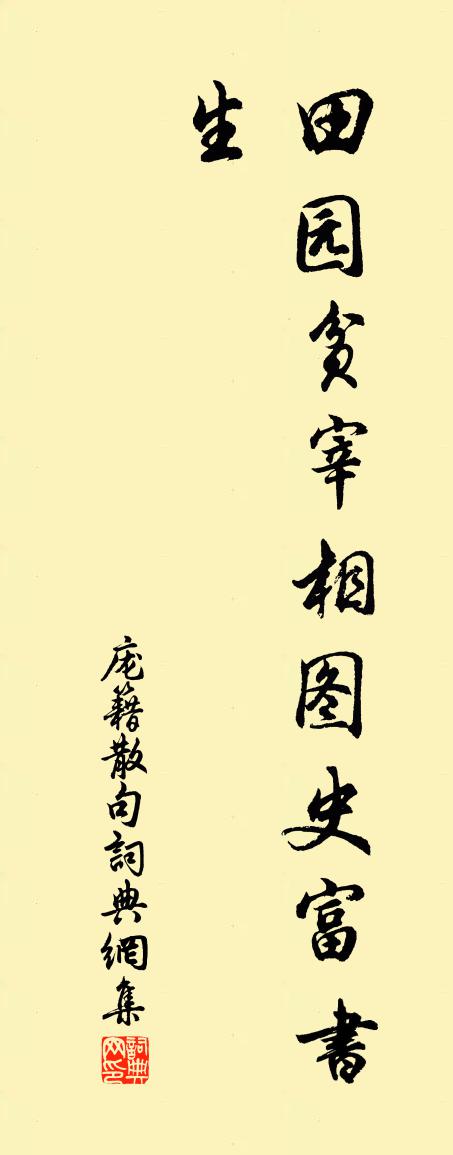 田园贫宰相图史富書
生
庞籍散句詞典網集
詞典网印